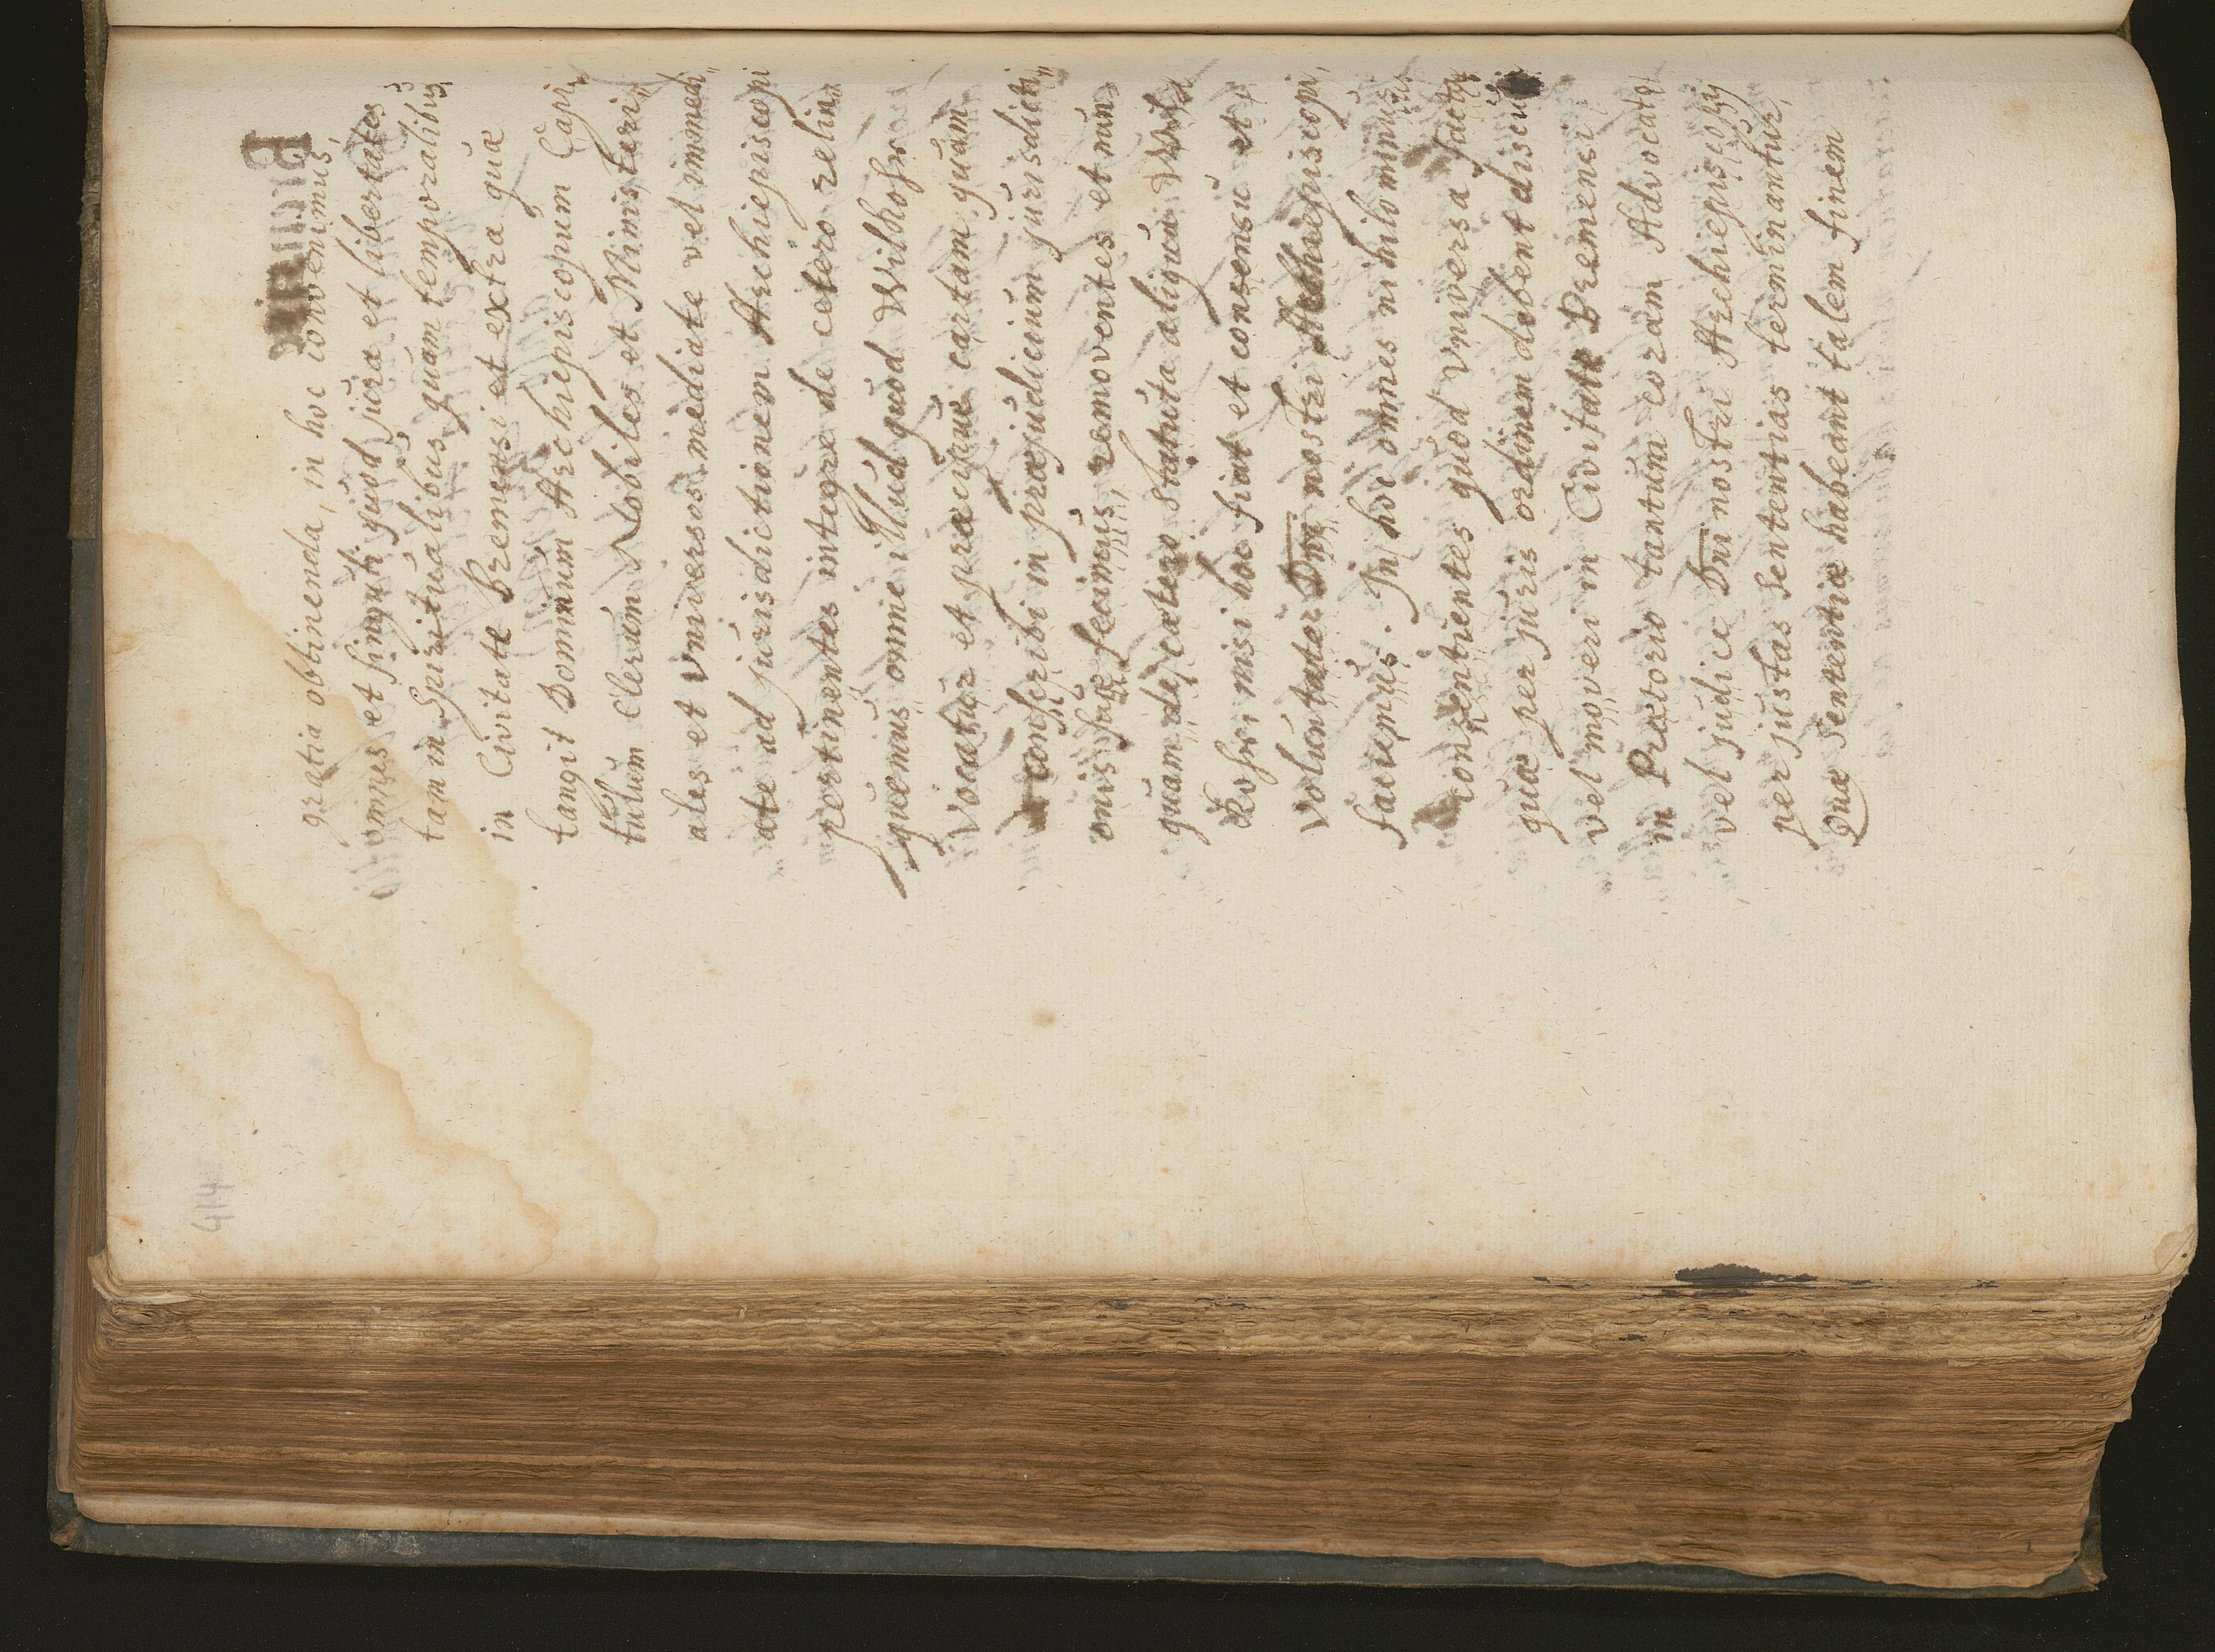 gratia obtinenda, in hoc convenimus,
omnes et singuli quod jura et libertates
tam in Spiritualibus quam temporalibus
in Civitate Bremensi et extra quæ
tangit Dominum Archiepiscopum Capi„
tulum Clerum Nobiles et Ministeri„
ales et Vniversos mediate vel immedi„
ate ad jurisdictionem Archiepiscopi
pertinentes integre de cetero relin„
quemus omne illud quod Wilkohr
Vocatur et præcipue cartam quam
conscribi in præjudicium jurisdicti„
onis suæ fecimus, removentes et nun„
quam de cætero statuta aliqua Wil„
kohri nisi hoc fiat et consensu et
Voluntate Dni nostri Archiepiscopi,
faciemus. In hoc omnes nihilominus
consentientes quod Vniversa facta
quæ per juris ordinem debent discuti
vel moveri in Civitate Bremensi
in Prætorio tantum coram Advocato
vel judice Dni nostri Archiepiscopij
per justas Sententias terminantur,
Quæ Sententiæ habeant talem finem
414